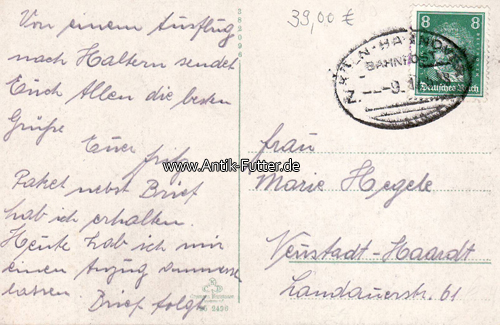 39,00 €
Von einem Ausflug
nach Haltern sendet
Euch Allen die besten
Grüße
Euer
Paket nebst Brief
hab ich erhalten.
Heute hab ich mir
einen Anzug anmessen
lassen Brief folgt
382096
8 8
Deutsches Reich
BAHNPOST
www.Antik-Futter.de
Frau
Marie Hegele
Neustadt-Haardt
Landauerstr. 61